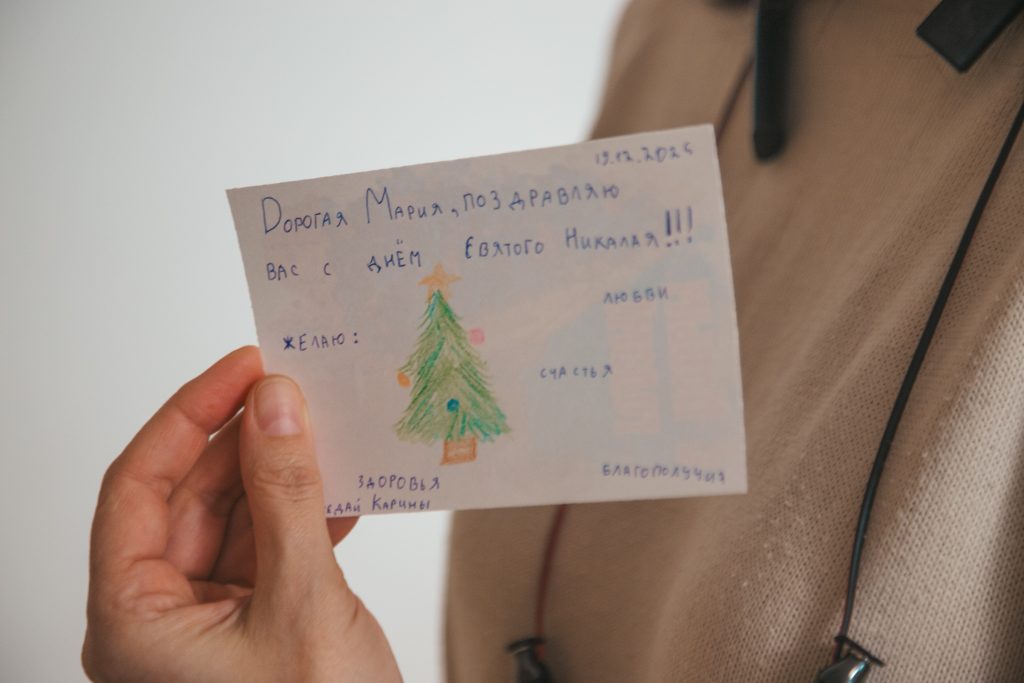 19.12.2025
Дорогая Мария, поздравляю
вас с днём Святого Никалая!!!
любви
желаю:
счастья
благополучия
здоровья
Карины